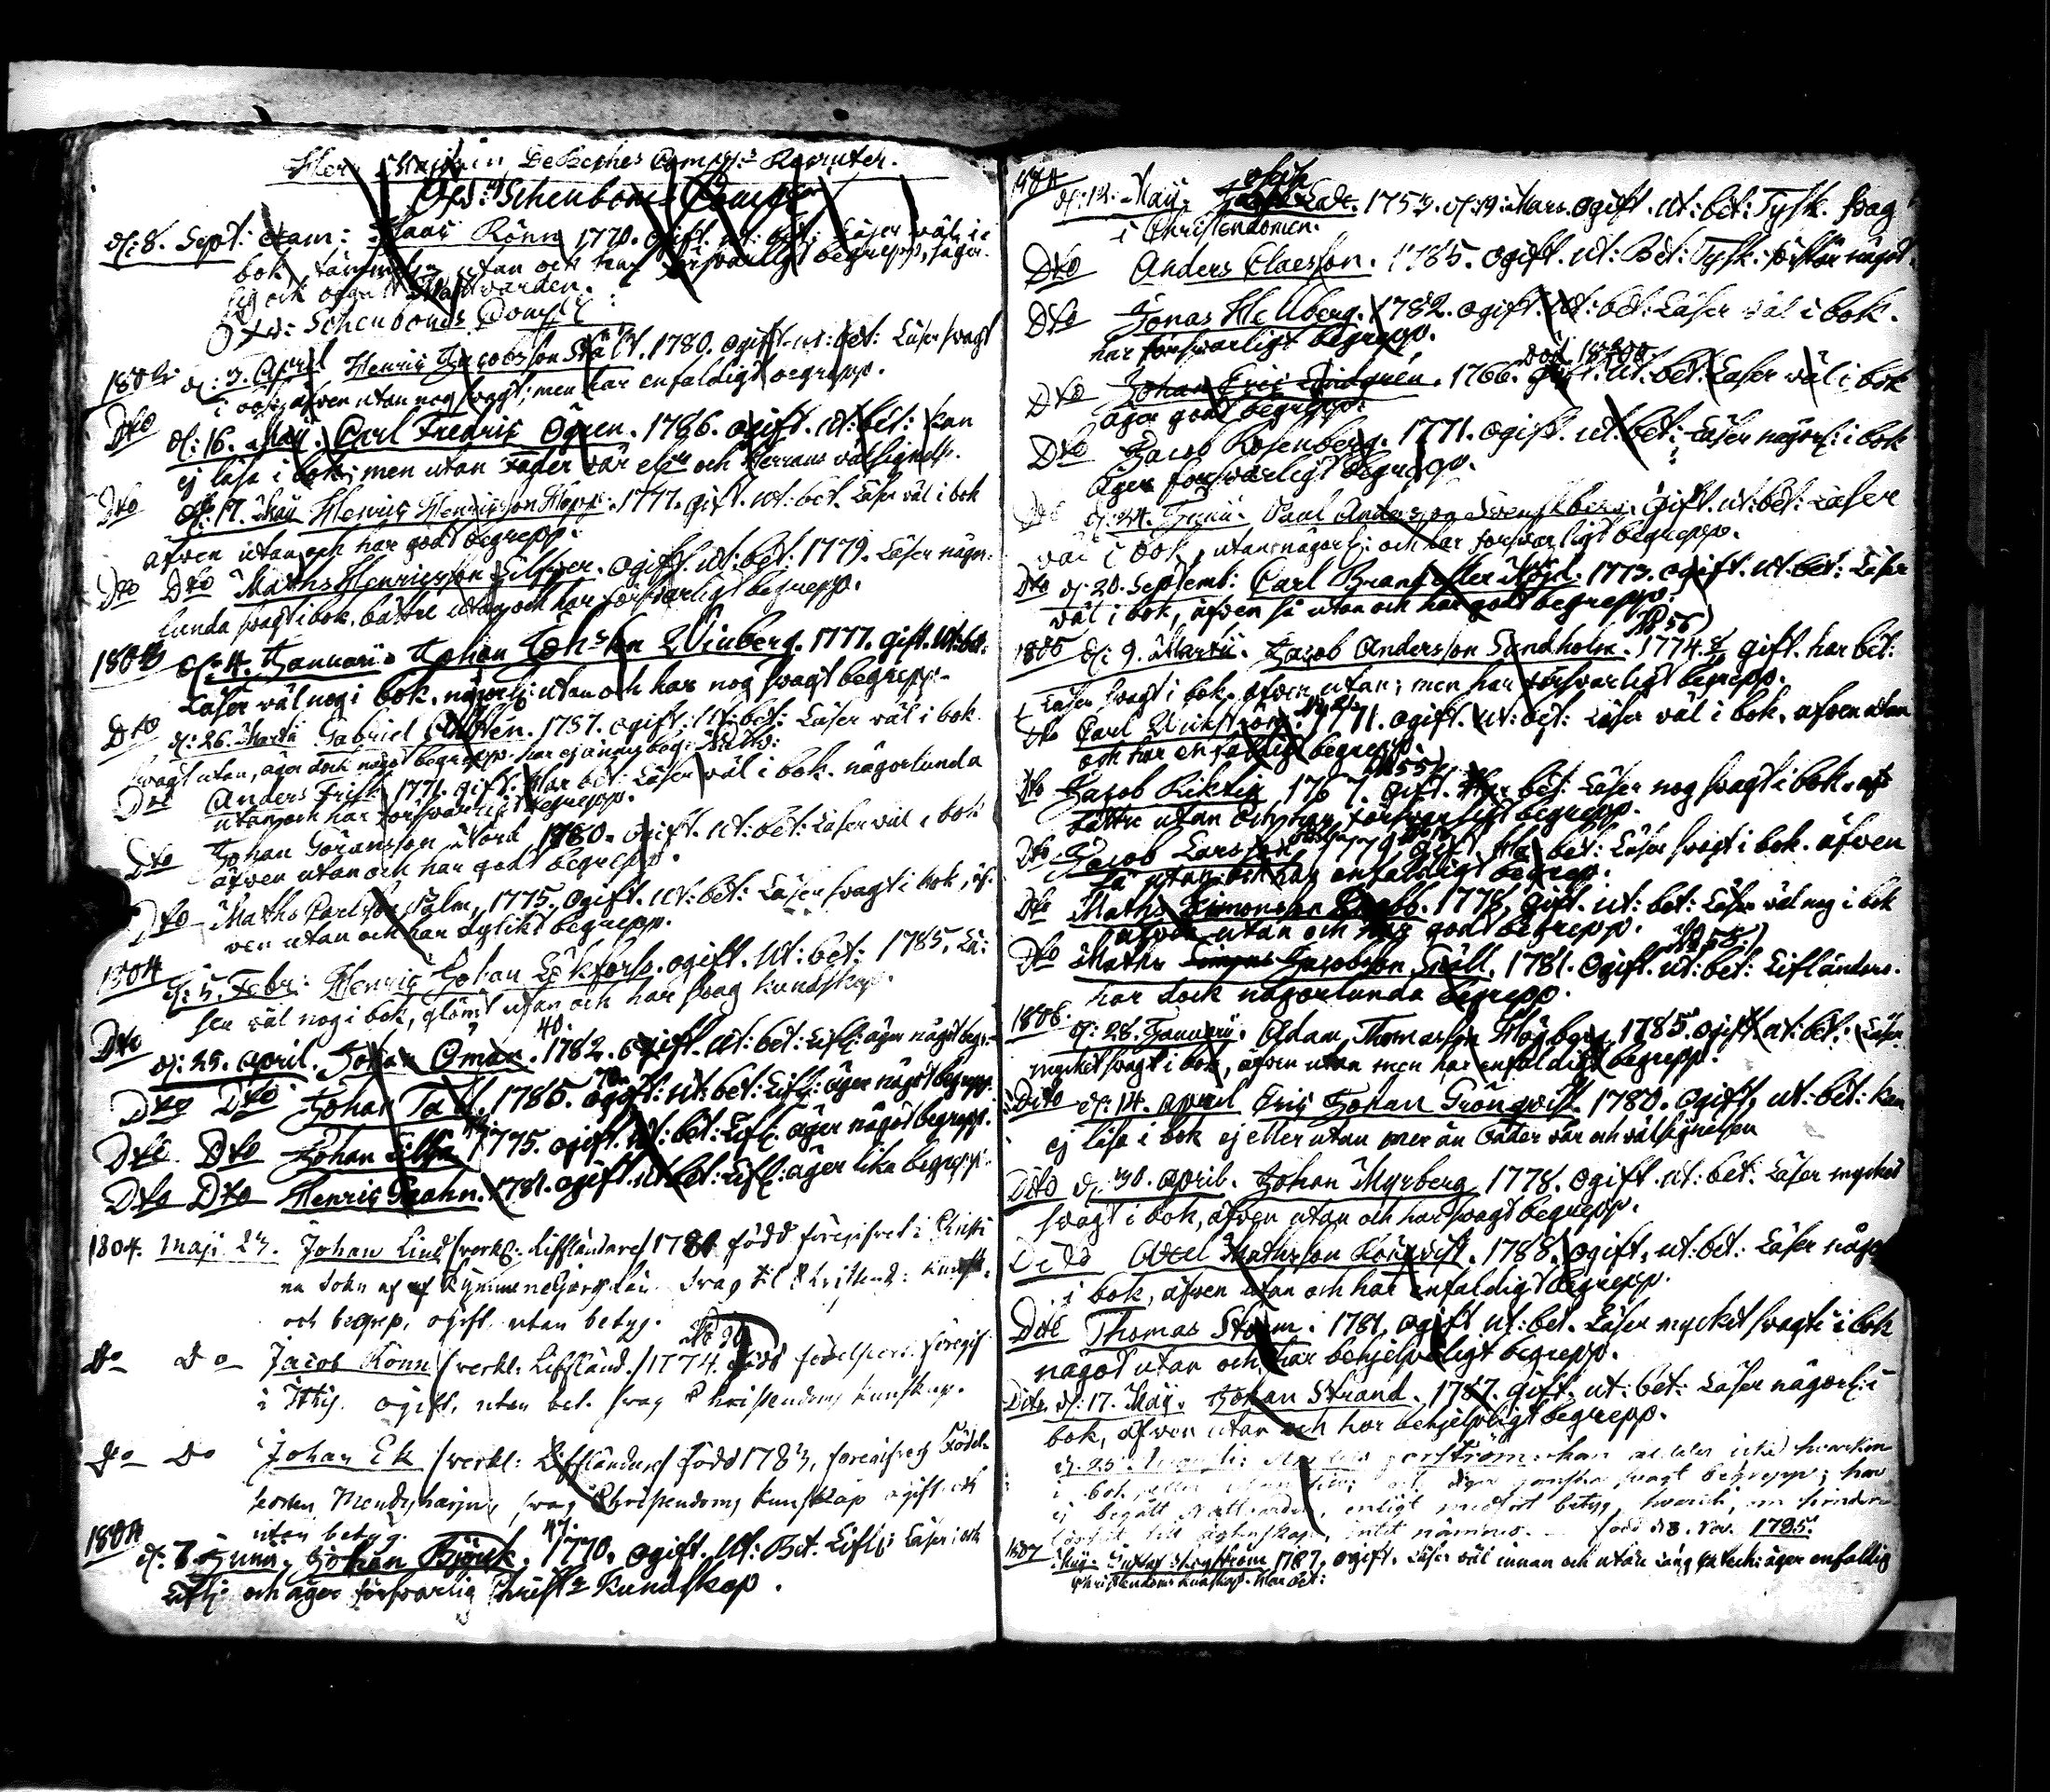 Herr Majoren DeBeshes Comp:s Recruter.
Öfv: Schenboms Comp:
d: 8. Sept: Claas Rönn 1770. ogift. ut: bet: Läser väl i
bok, utan och har försvarligt begrepp, säger
sig ock Nattvarden.
Öfv: Schenboms Comp:
1802. d: 3. April Henric Jacobsson Stålt. 1780. ogift. ut: bet: Läser svagt
i bok, äfven utan nog svagt; men har enfaldigt begrepp.
Dto d: 16. Maij. Carl Fredric Ögren. 1786. ogift. ut: bet: kan
ej läsa i bok; men utan Fader vår och Herrans välsignels.
Dto d: 17. Maij Henric Henricsson Hopp. 1777. gift. ut: bet. Läser väl i bok
äfven utan och har godt begrepp.
Dto Dto Maths Henricsson Silfver. ogift. ut: bet: 1779. Läser någor-
lunda svagt i bok, bättre utan och har försvarligt begrepp.
1803 d: 4. Januarii. Johan Joh:sson Winberg. 1777. gift. ut: bet:
Läser väl nog i bok, någorl: utan och har nog svagt begrepp.
Dto d: 26. Martii Gabriel 1787. ogift. ut: bet: Läser väl i bok
svagt utan, äger dock något begrepp. har ej annu beg: Nattv:
Dto Anders Frisk 1771. gift. Har bet: Läser väl i bok. någorlunda
utan och har försvarligt begrepp.
Dto Johan Göransson Mörk 1780. ogift. ut: bet: Läser väl i bok
äfven utan och har godt begrepp.
Dto Maths Carlsson Palm, 1775. ogift. ut: bet: Läser svagt i bok, äf-
ven utan och har dylikt begrepp.
1804 d: 5. Febr: Henric Johan Löfkfors. ogift. ut: bet: 1785. Lä-
ser väl nog i bok, glömt utan och har svag kundskap.
40.
Dto d: 25. April. Johan Öman. 1782. ogift. ut: bet: Lifl: äger något begr:
Dto Dto Johan Tall. 1785. ogift: ut: bet: Lifl: äger något begrepp.
Dto Dto Johan Lilja 1775. ogift. ut: bet: Lifl: äger något begrepp.
Dto Dto Henric Grahn. 1781. ogift. ut: bet: Lifl: äger lika begrepp.
1804. Maji 23. Johan Lind /verkl: Lifländare/ 1780 född föregifvet i Christi
na sokn af Kymmenegårds län. svag til Christend: kunsk.
och begrep, ogift, utan betyg.
Do Do Jacob Rönn /verkl: Lifländ./ 1774. född föregif
i Ittis. ogift, utan bet. svag Christendoms kunskap.
Do Do Johan Ek /verkl: Lifländare/ född 1783, föregifvet Födel-
seorten Mendyharju, svag Christendoms kunskap ogift och
utan betyg.
47.
1804 d: 7. Junii. Johan Björk. 1770. ogift. ut: Bet. Lifl: Läser i bok
Lifl: och äger försvarlig Christ:s Kundskap.
1804
d: 12. Maij. Ek. 1759. d: 19. Mars. ogift. ut: bet: Tysk. svag
i Christendomen.
Dto Anders Claesson. 1785. ogift. ut: Bet: Tysk: förstår något.
Dto Jonas Hellberg. 1782. ogift: ut: bet: Läser väl i bok.
har försvarligt begrepp.
Dto Johan Eric Lindgren. 1766. gift. ut: bet: Läser väl i bok
äger godt begrepp.
Dto Jacob Rosenberg. 1771. ogift. ut: bet: Läser någorl: i bok
äger försvarligt begrepp.
Dto d: 24. Junii. Paul Andersson Svenskberg. Gift. ut: bet: Läser
väl i bok, utan någorl: och har försvarligt begrepp.
Dto d: 20. Septemb: Carl Brant eller Höjd. 1773. ogift. ut. bet: Läser
väl i bok, äfven så utan och har godt begrepp.
1805 d: 9. Martii. Jacob Andersson Sundholm. 1774. gift. har bet:
Läser svagt i bok, äfven utan; men har försvarligt begrepp.
Dto Carl Wickström. 1771. ogift. ut: bet: Läser väl i bok, äfven utan
och har enfaldigt begrepp.
Dto Jacob Riktig 1767. gift. Har bet: Läser nog svagt i bok, äf
bättre utan och har försvarligt begrepp.
Dto Jacob Larsson 1779. gift. Har bet: Läser svagt i bok. äfven
så utan och har enfaldigt begrep.
Dto Maths Simonsson Krabb. 1778. gift. ut: bet: Läser väl nog i bok
äfven utan och har godt begrepp.
Dto Maths Jacobsson Gräll. 1781. ogift. ut: bet: Lifländers.
har dock någorlunda begrepp.
1806. d: 28. Januarii. Adam Thomasson Högberg 1785. ogift. ut: bet. Läser
mycket svagt i bok, äfven utan men har enfaldigt begrepp.
Dito d: 14. April Eric Johan Grönqvist. 1780. ogift, ut: bet: kan
ej läsa i bok ej eller utan mer än Fader vår och välsignelsen
Dito d: 30. April. Johan Myrberg 1778. ogift. ut: bet. Läser mycket
svagt i bok, äfven utan och har svagt begrepp.
Dito Axel Mathsson Rönqvist. 1788. ogift, ut: bet: Läser någo
i bok, äfven utan och har enfaldigt begrepp.
Dito Thomas Storm. 1781. ogift ut: bet. Läser mycket svagt i bok
något utan och har behjelpeligt begrepp.
Dito d: 17. Maij. Johan Strand. 1787. gift. ut: bet: Läser någorl: i
bok, äfven utan och har behjelpligt begrepp.
d. 25. Augusti: Forström; kan icke hvarken
i bok, eller utan och äger ganska svagt begrepp; har
ej begått Nattvarden, enligt medfört betyg, hvaruti, om hinder
til ägtenskap, intet nämnes. född d 8. Nov. 1785.
1807 Gustaf Hagström 1787, ogift. Läser väl innan och utan äger enfaldig
Christendoms kunskap. Har bet: